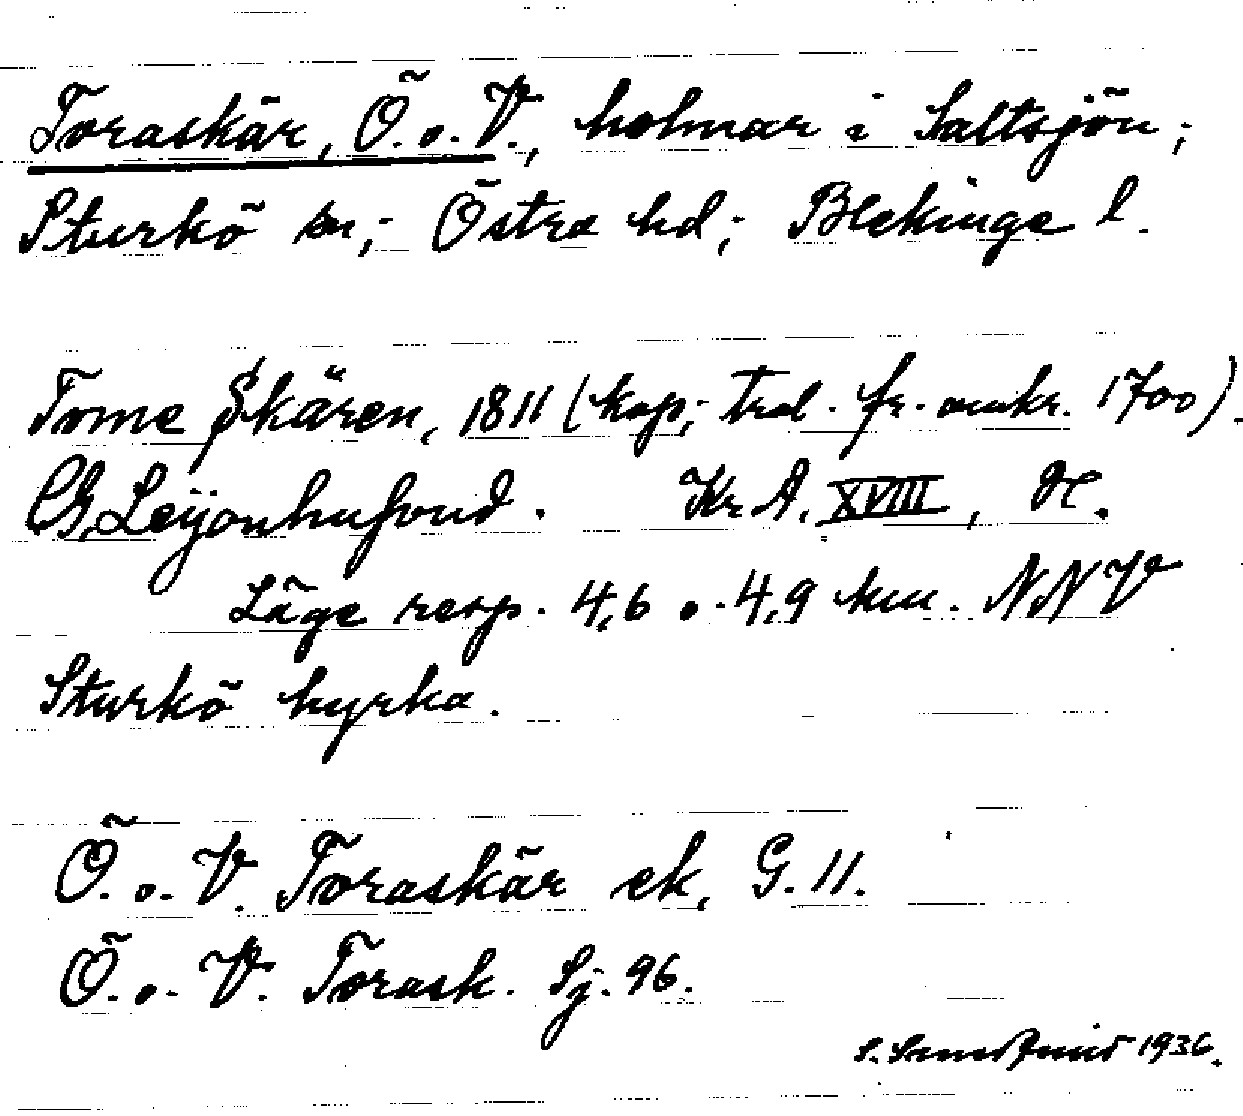 Toraskär, Ö. o. V., holmar i Saltsjön;
Sturkö sn; Östra hd; Blekinge l.
Torne Skären, 1811 (kop; trol. fr. omkr. 1700).
CG. Leijonhufvud. Kr A. XVIII, H.
Läge resp. 4,6 o. 4,9 km. NNV
Sturkö kyrka.
Ö. o. V. Toraskär ek, G. 11.
Ö. o. V. Torask. Sj. 96.
S. 1936.